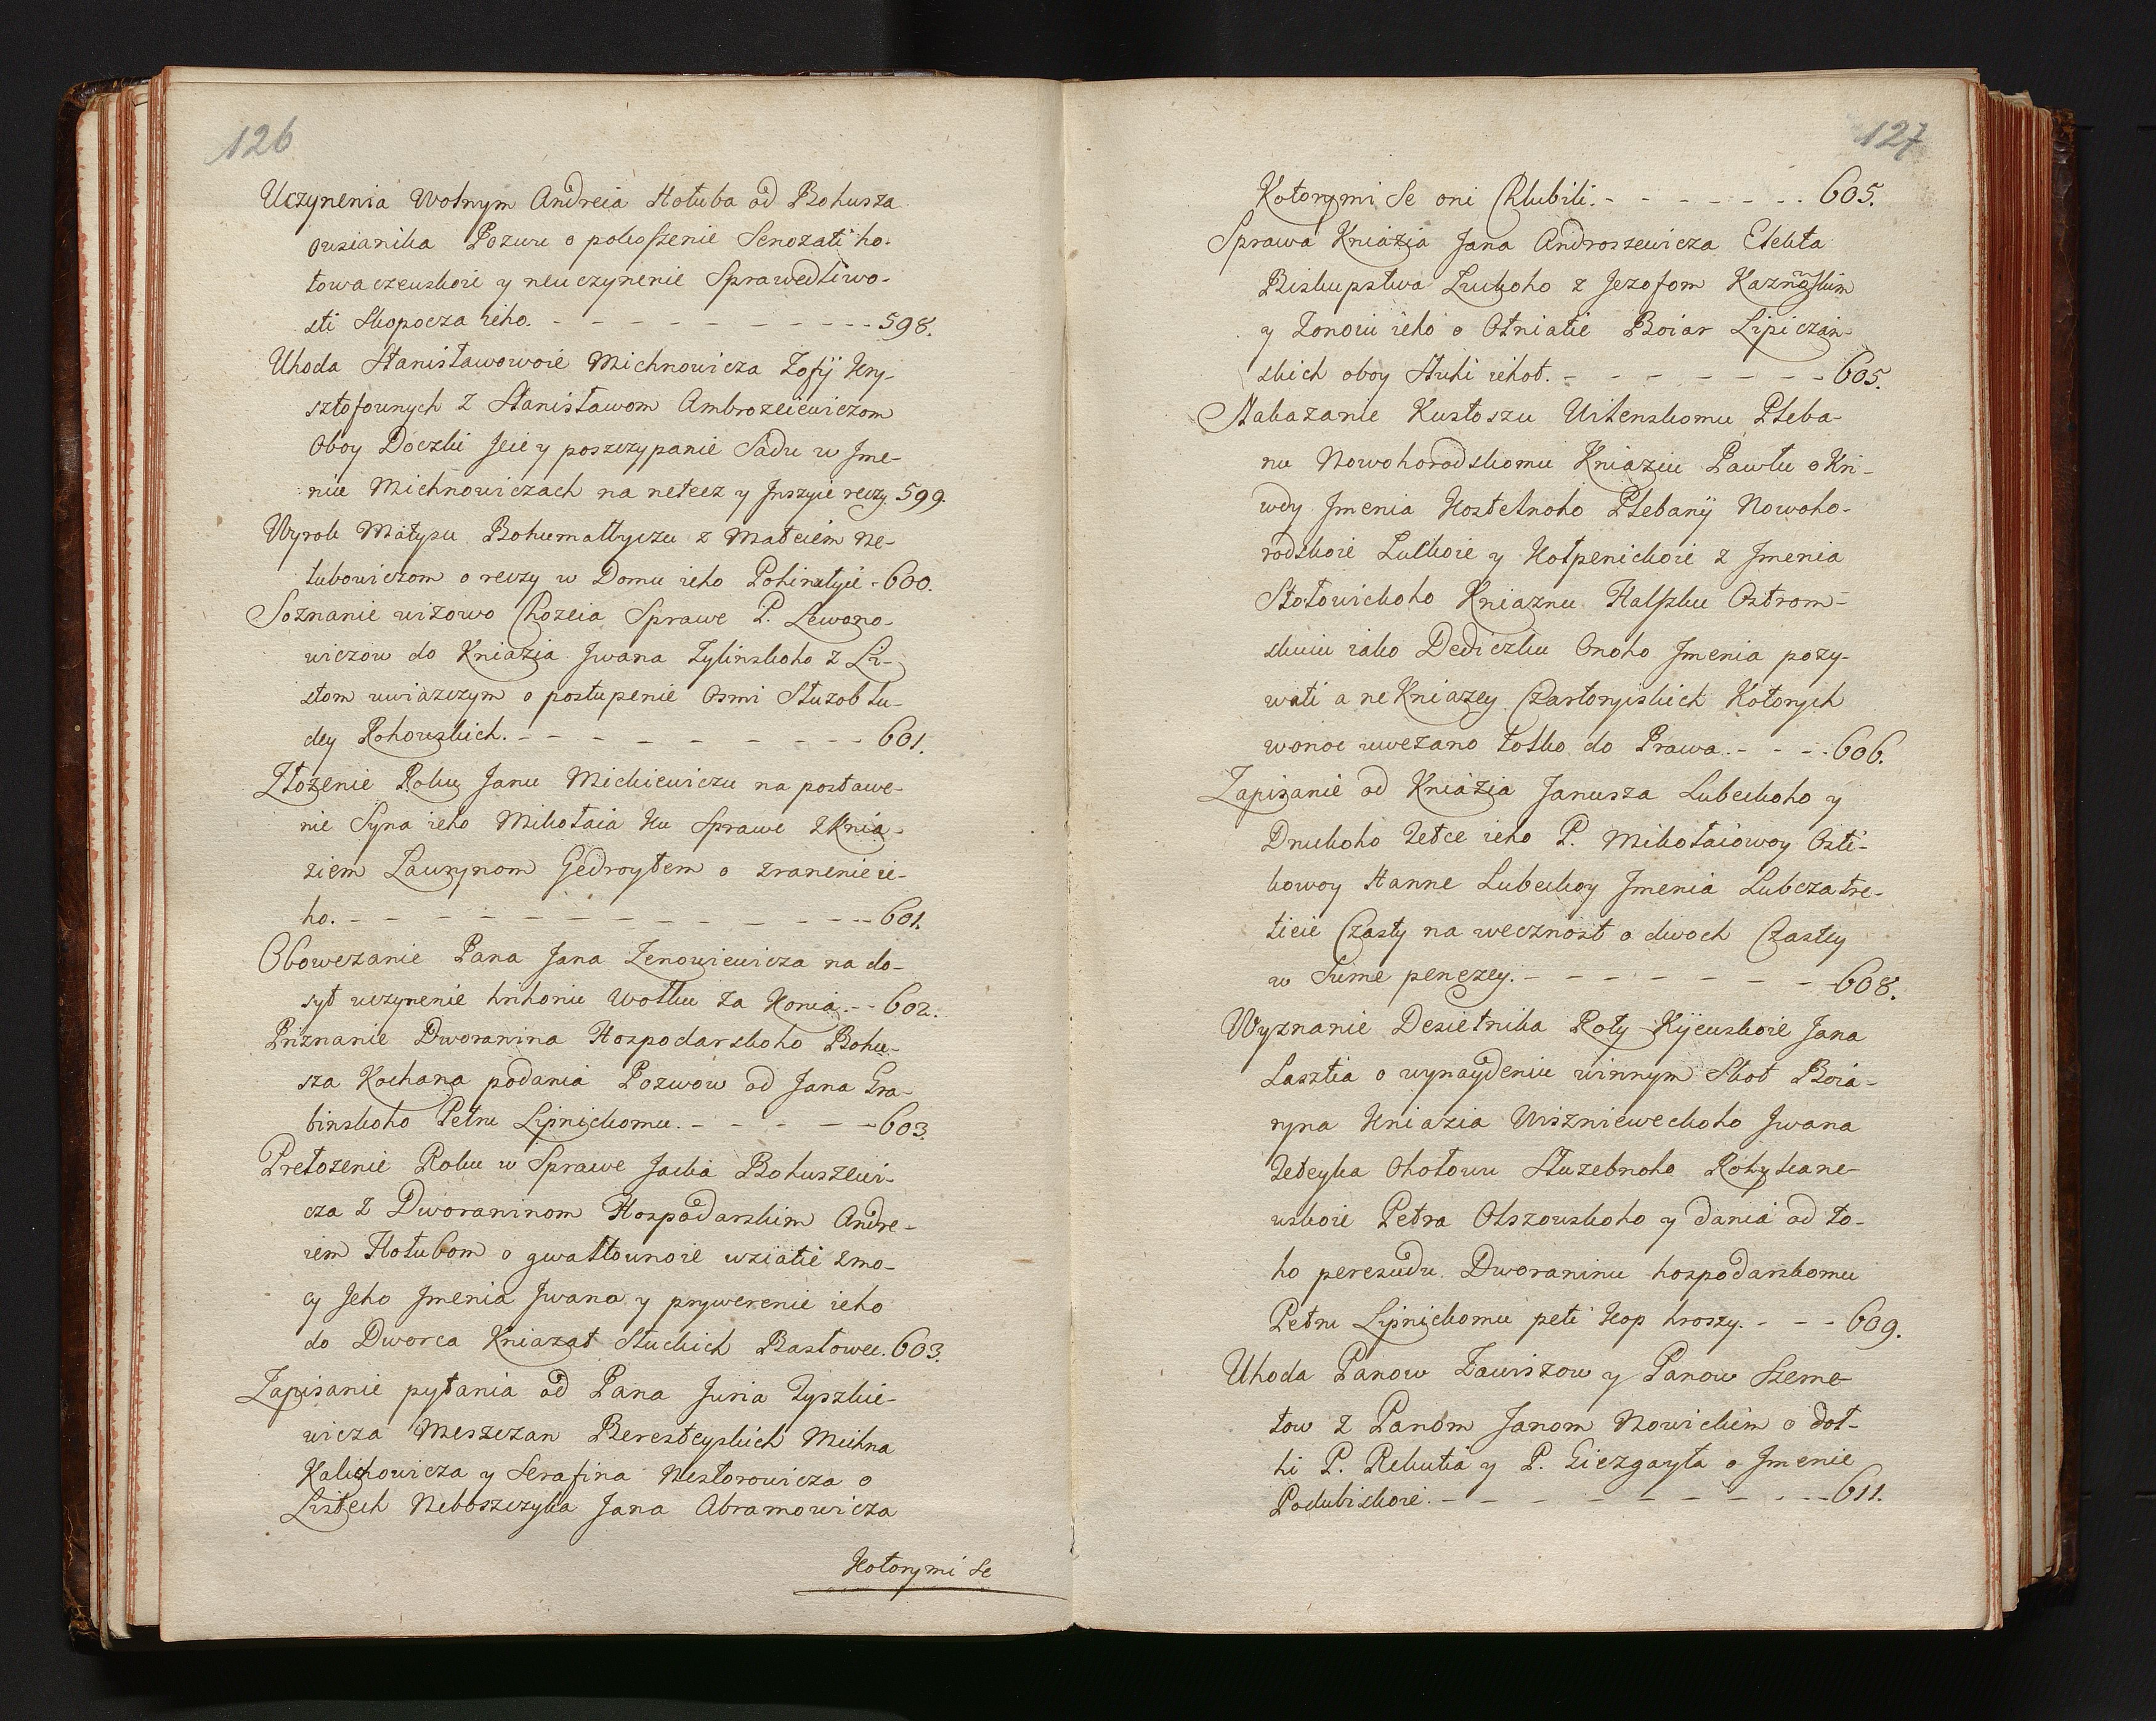 126
Uczynenia Wolnym Andreia Hołuba od Bohusza
Owsianika Pozwu o pokoszenie Senozati ho-
towaczewskoie y neuczynenie Sprawedliwo-
sti Skopocza ieho. - - - - - - - - - 598.
Uhoda Stanisławowoie Michnowicza Zofij Kry-
sztofownych z Stanisławom Ambrozeiewiczom
Oboy Doczki Jeie y poszczypanie Sadu w Jme-
niu Michnowiczach na netecz y Jnszyie reczy. 599.
Wyrok Matysu Bohumatłyczu z Mateiem Ne-
lubowiczom o reczy w Domu ieho Pohinułyie - 600.
Soznanie wizowo Chozeia Sprawe P. Lewono-
wiczow do Kniazia Jwana Zylinskoho z Li-
stom uwiazczym o postupenie Osmi Słuzob lu-
dey Rohowskich. - - - - - - - - - 601.
Złozenie Roku Janu Mickiewiczu na postawe-
nie Syna ieho Mikołaia Ku Sprawe z Knia-
ziem Ławrynom Gedroytem o zranenie ie-
ho. - - - - - - - - - - - - 601.
Obowezanie Pana Jana Zenowiewicza na do-
syt uczynenie hrihoriu Wołku za Konia. - - 602.
Priznanie Dworanina Hospodarskoho Bohu-
sza Kochana podania Pozwow od Jana Gra-
binskoho Petru Lipnickomu. - - - - - 603.
Prełozenie Roku w Sprawe Jacka Bohuszewi-
cza z Dworaninom Hospodarskim Andre-
iem Hołubom o gwałtownoie wziatie zmo-
cy Jeho Jmenia Jwana y prywerenie ieho
do Dworca Kniazat Słuckich Basłowcu. 603.
Zapisanie pytania od Pana Juria Tyszkie-
wicza Meszczan Beresteyskich Michna
Kalichowicza y Serafina Nestorowicza o
Listech Neboszczyka Jana Abramowicza
Kotorymi se
127
Kotorymi Se oni Chlubili. - - - - - - - 605.
Sprawa Kniazia Jana Androszewicza Elekta
Biskupstwa Łuckoho z Jezofom
y Zonoiu ieho o Otniatie Boiar Lipiczan-
skich oboy Słuhi iehot. - - - - - - - 605.
Nakazanie Kustoszu Witenskomu Pleba-
nu Nowohorodskomu Kniaziu Pawłu o Kri-
wdy Jmenia Kostelnoho Plebanij Nowoho-
rodskoie Łuckoie y Kołpenickoie z Jmenia
Stołowickoho Kniaznu Halszku Ostrom-
skuiu iako Dediczku Onoho Jmenia pozy-
wati a ne Kniazey Czartoryiskich Kotorych
wonoe uwezano tolko do Prawa. - - - - 606.
Zapisanie od Kniazia Janusza Lubeckoho y
Druckoho Tetce ieho P. Mikołaiowoy Osti-
kowoy Hanne Lubeckoy Jmenia Lubcza tre-
tieie Czasty na wecznost a dwoch Czastey
w Sume penezey. - - - - - - - - 608.
Wyznanie Desietnika Roty Kijewskoie Jana
Lasztia o wynaydeniu winnym Skot Boia-
ryna Kniazia Wisznieweckoho Jwana
Tedeyka Ohołowu Słuzebnoho Rohykane-
wskoie Petra Olszowskoho y dania od to-
ho peresudu Dworaninu hospodarskomu
Petru Lipnickomu peti Kop hroszy. - - - 609.
Uhoda Panow Zawiszow y Panow Szeme-
tow z Panom Janom Nowickim o doł-
hi P. Rekutia y P. Giezgayła o Jmenie
Podubiskoie. - - - - - - - - - 611.